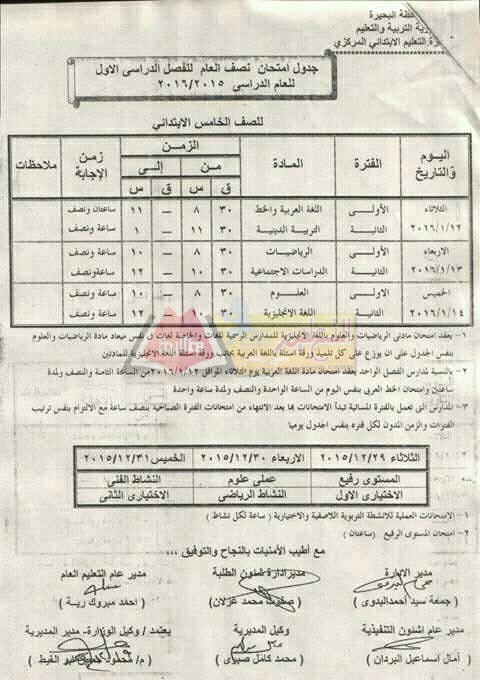 ظة البحيرة
رية التربية والتعليم
رة التعليم الابتدائي المركزي
جدول امتحان نصف العام للفصل الدراسى الاول
للعام الدراسى ٢٠١٦/٢٠١٥
للصف الخامس الابتدائي
اليوم والتاريخ الفترة المادة الزمن زمن الإجابة ملاحظات
من إلى
ق س ق س
الثلاثاء الأولى اللغة العربية والخط ٣٠ ٨ — ١١ ساعتان ونصف
٢٠١٦/١/١٢ الثانية التربية الدينية ٣٠ ١١ — ١ ساعة ونصف
الاربعاء الأولى الرياضيات ٣٠ ٨ — ١٠ ساعة ونصف
٢٠١٦/١/١٣ الثانية الدراسات الاجتماعية ٣٠ ١٠ — ١٢ ساعة ونصف
الخميس الأولى العلوم ٣٠ ٨ — ١٠ ساعة ونصف
٢٠١٦/١/١٤ الثانية اللغة الانجليزية ٣٠ ١٠ ١٢ ساعة ونصف
١- يعقد امتحان مادتى الرياضيات والعلوم باللغة الانجليزية للمدارس الرسمية للغات والخاصة لغات فى نفس ميعاد مادة الرياضيات والعلوم
بنفس الجدول على ان يوزع على كل تلميذ ورقة اسئلة باللغة العربية بجانب ورقة اسئلة اللغة الانجليزية للمادتين
٢- بالنسبة لمدارس الفصل الواحد يعقد امتحان مادة اللغة العربية يوم الثلاثاء الموافق ٢٠١٦/١/١٢ من الساعة الثامنة والنصف ولمدة
ساعتين وامتحان الخط العربى بنفس اليوم من الساعة الواحدة والنصف ولمدة ساعة واحدة
٣- المدارس التى تعمل بالفترة المسائية تبدأ الامتحانات بها بعد الانتهاء من امتحانات الفترة الصباحية بنصف ساعة مع الالتزام بنفس ترتيب
الفترات والزمن المدون لكل فتره بنفس اجدول يوميا
الثلاثاء ٢٠١٥/١٢/٢٩ الاربعاء ٢٠١٥/١٢/٣٠ الخميس ٢٠١٥/١٢/٣١
المستوى رفيع عملى علوم النشاط الفنى
الاختيارى الاول النشاط الرياضى الاختيارى الثانى
١- الامتحانات العملية للانشطة التربوية اللاصفية والاختيارية ( ساعة لكل نشاط )
٢- امتحان المستوى الرفيع (ساعتان )
مع أطيب الأمنيات بالنجاح والتوفيق ،،،
مدير الإدارة مدير إدارة شئون الطلبة مدير عام التعليم العام
( جمعة سيد أحمد البدوى ) ( صفوت محمد غزلان ) ( احمد مبروك رية )
مدير عام الشئون التنفيذية وكيل المديرية يعتمد / وكيل الوزارة- مدير المديرية
( آمال اسماعيل البردان ) ( محمد كامل صبرى ) ( م/ محمود الغيط )